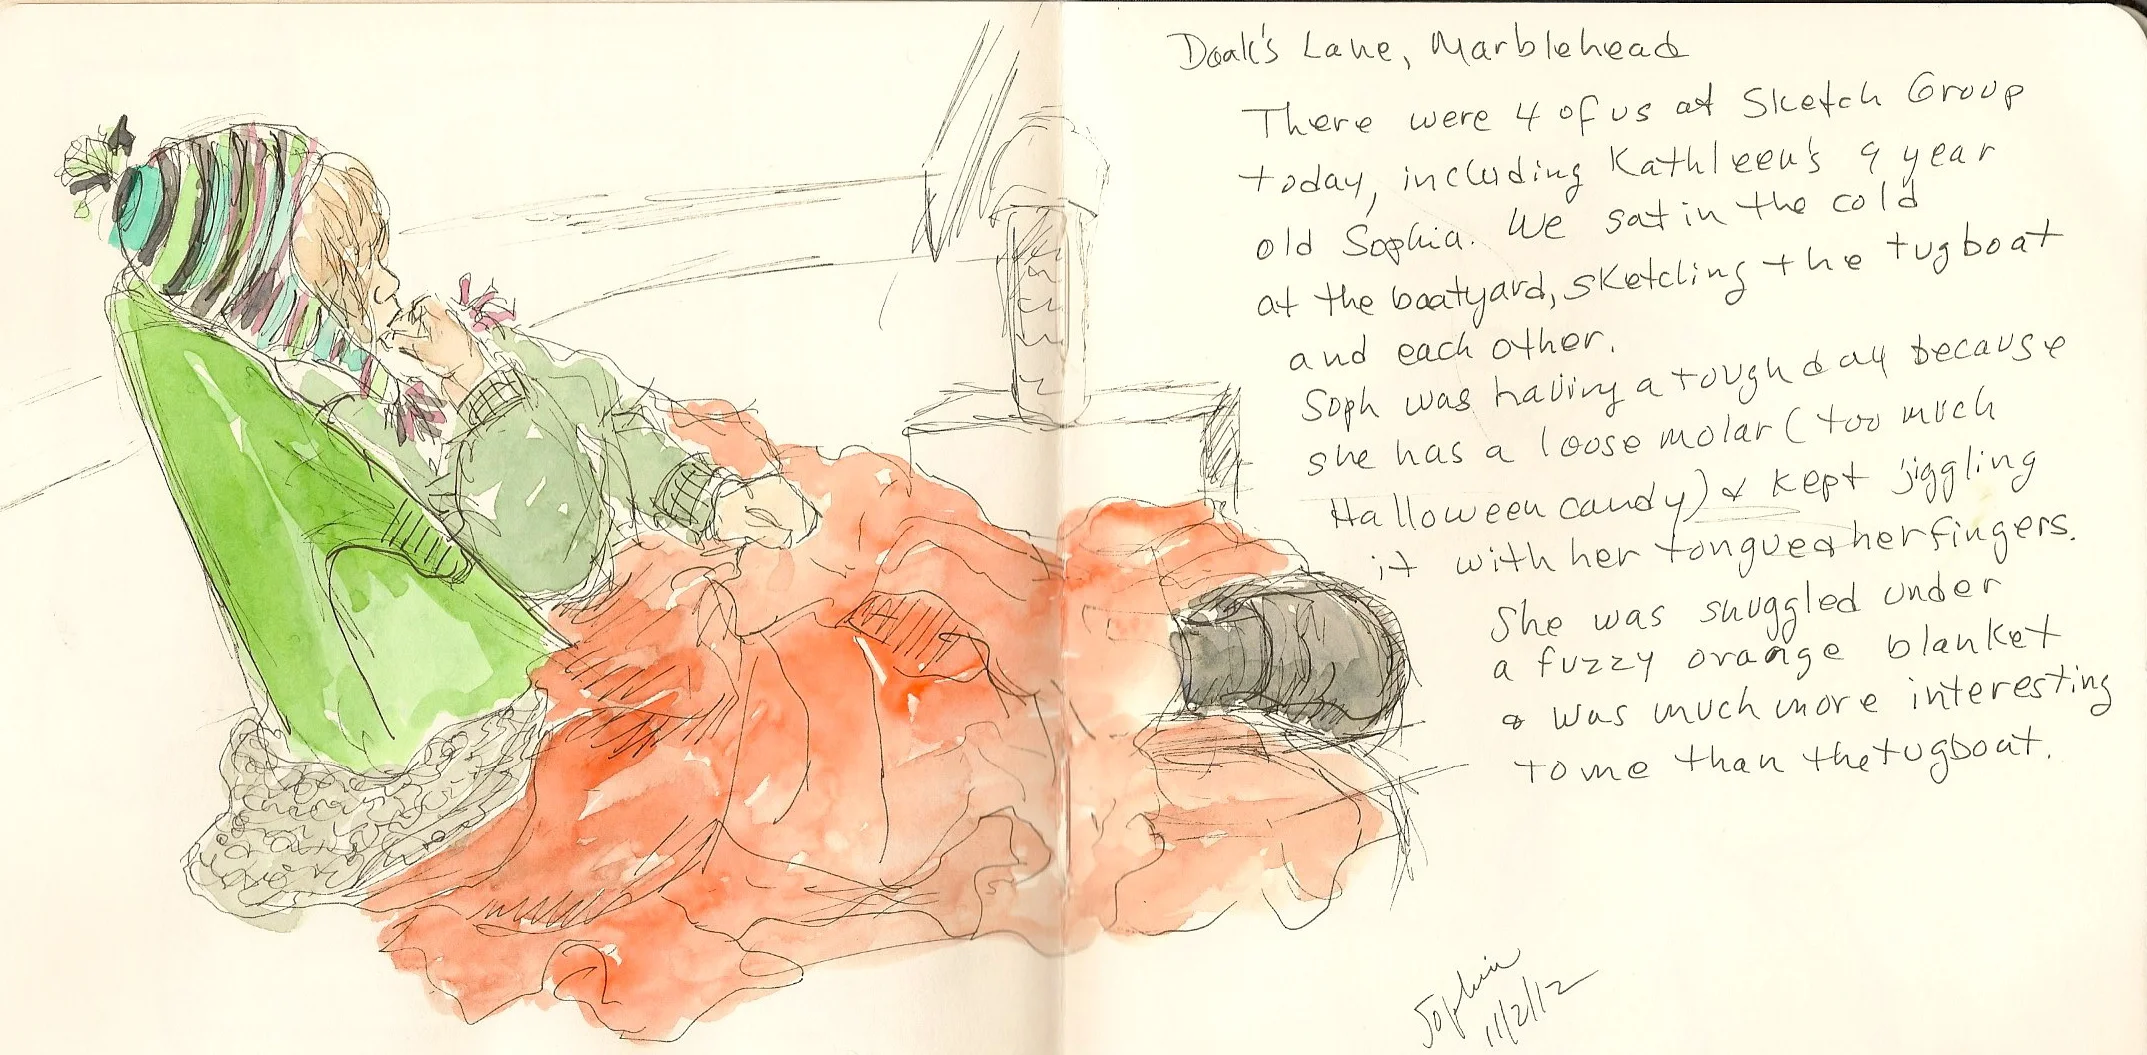 Doak's Lane, Marblehead
There were 4 of us at Sketch Group
today, including Kathleen's 9 year
old Sophia. We sat in the cold
at the boatyard, sketching the tugboat
and each other.
Soph was having a tough day because
she has a loose molar (too much
Halloween candy) & kept jiggling
it with her tongue & her fingers.
She was snuggled under
a fuzzy orange blanket
& was much more interesting
to me than the tugboat.
Sophia
11/2/12